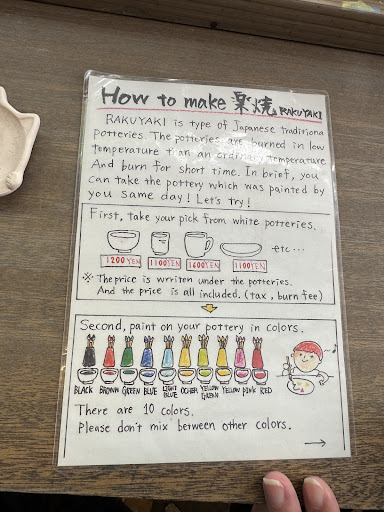 How to make 楽焼 RAKUYAKI
RAKUYAKI is type of Japanese traditiona
potteries. The potteries are burned in low
temperature than an ordinary temperature
And burn for short time. In brief, you
can take the pottery which was painted by
you same day! Let's try!
First, take your pick from white potteries.
etc...
1200YEN 1100YEN 1600YEN 1100YEN
※ The price is wrriten under the potteries.
And the price is all included. (tax, burn fee)
Second, paint on your pottery in colors.
BLACK BROWN GREEN BLUE LIGHT BLUE OCHER YELLOW GREEN YELLOW PINK RED
There are 10 colors.
Please don't mix between other colors.